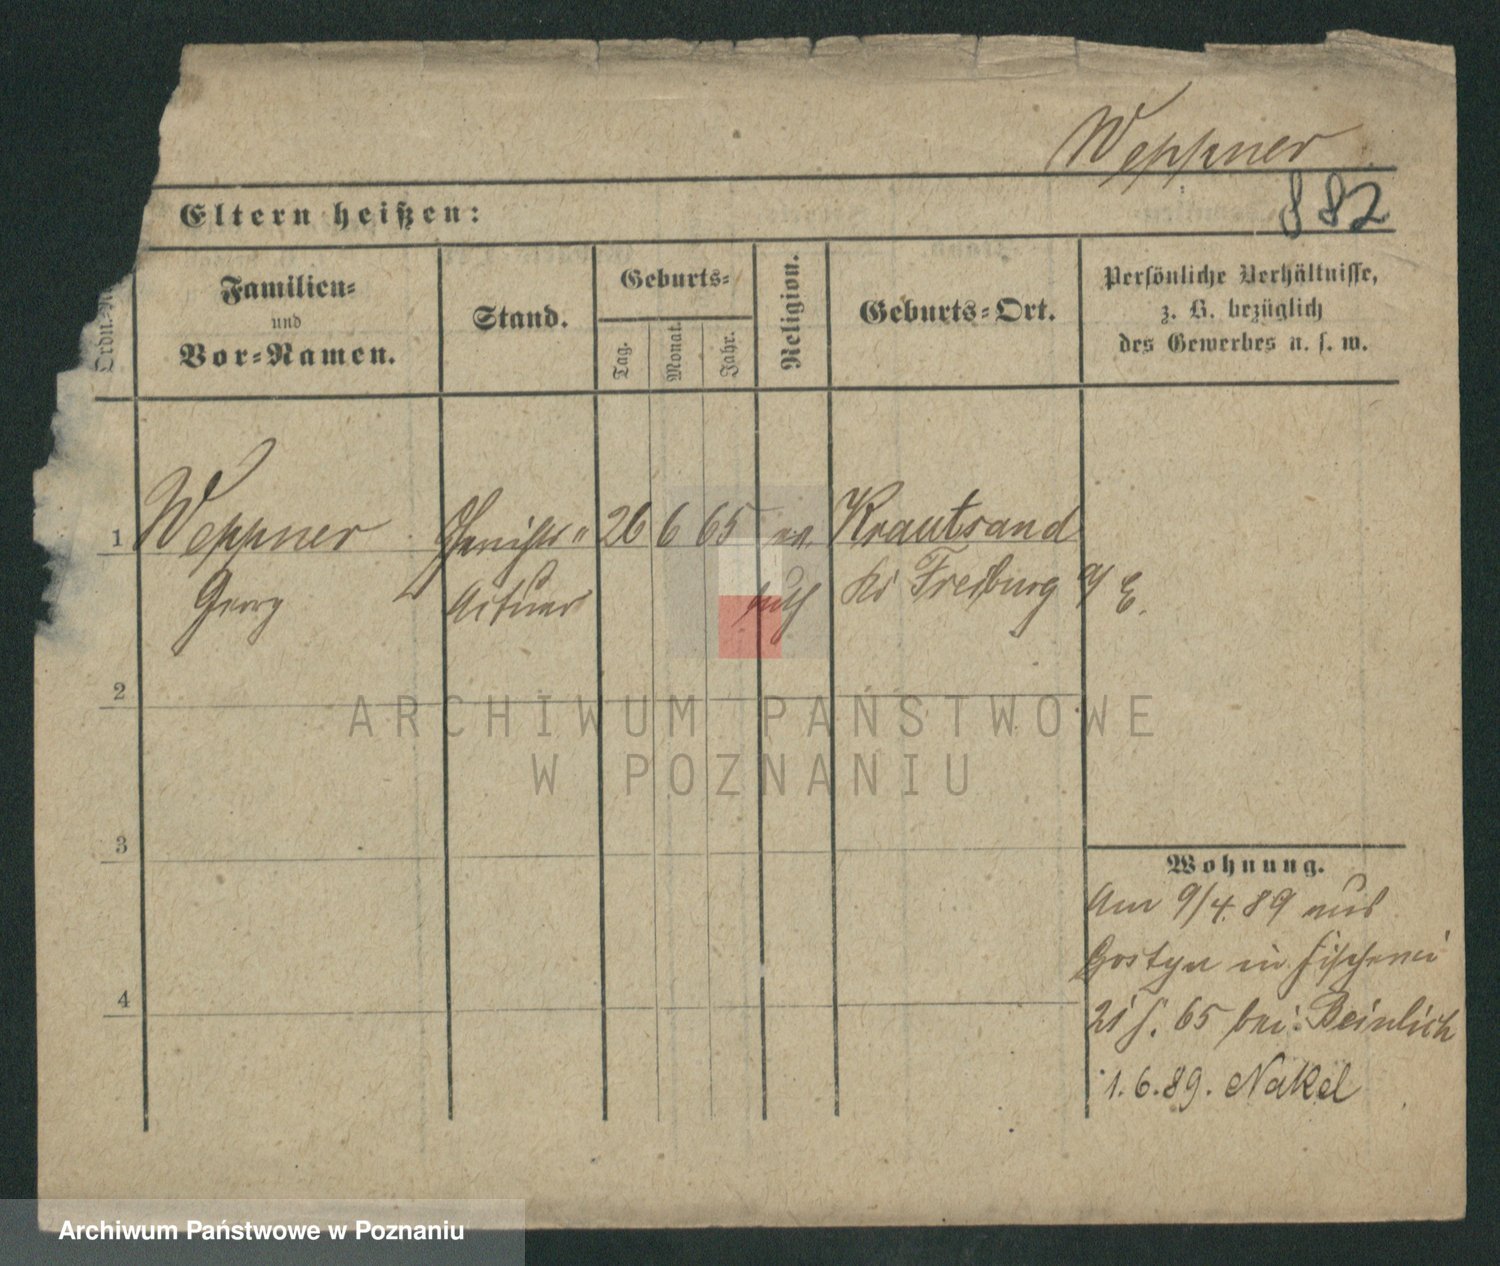 Weppner
882
Eltern heißen:
Familien-
und
Vor-Namen.
Stand.
Geburts-
Tag.
Monat.
Jahr.
Religion.
Geburts-Ort.
Persönliche Verhältnisse,
z. B. bezüglich
des Gewerbes u. s. w.
1 Weppner 26 6 65 ev. Krautsand
Georg Actuar luth Kr Freiburg a/E.
2
3
4
Wohnung.
Am 9/4. 89 aus
Gostyn in Fischerei
65 bei Beinlich
1.6.89. Nakel
ARCHIWUM PAŃSTWOWE
W POZNANIU
Archiwum Państwowe w Poznaniu